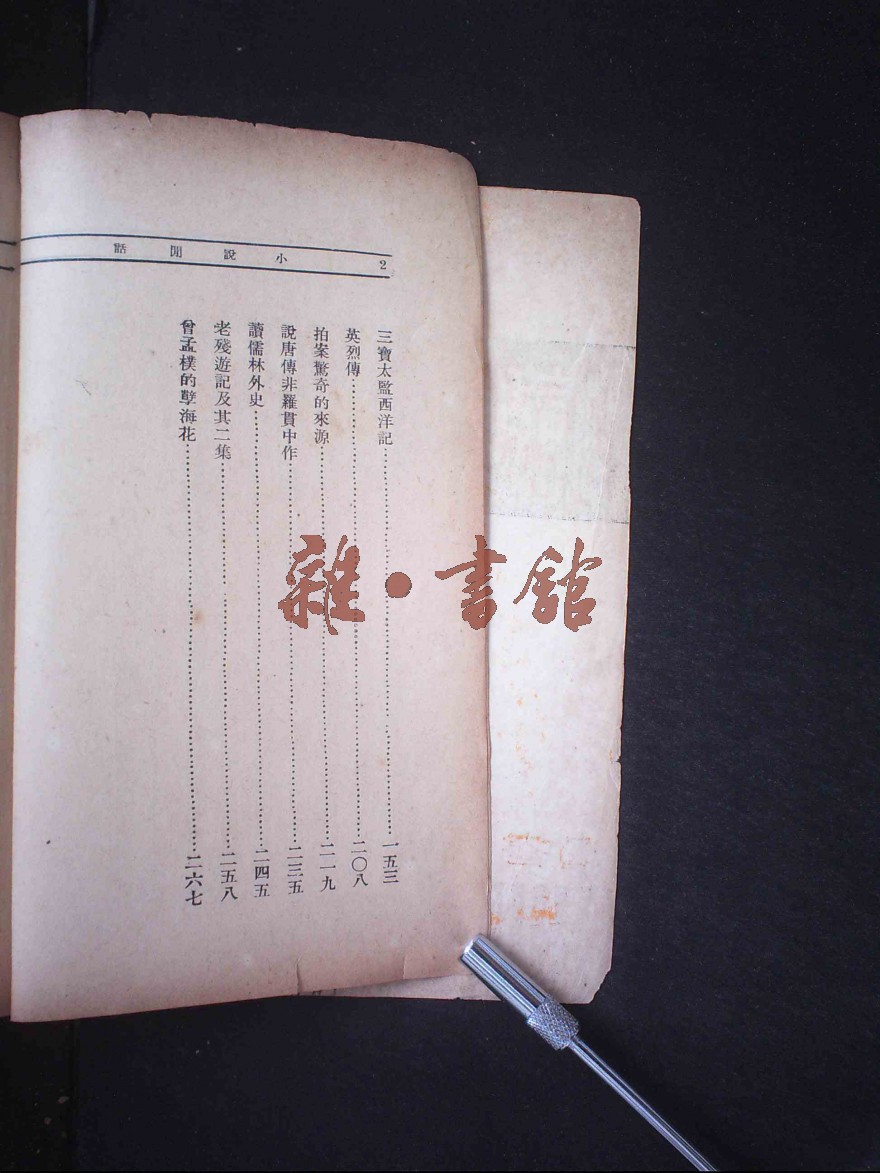 2 小說閒話
三寶太監西洋記……一五三
英烈傳……二〇八
拍案驚奇的來源……二一九
說唐傳非羅貫中作……二三五
讀儒林外史……二四五
老殘遊記及其二集……二五八
曾孟樸的孽海花……二六七
雜·書館